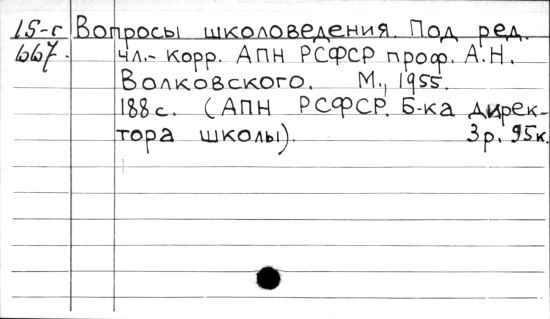 15-г Вопросы школоведения. Под ред.
667. чл.- корр. АПН РСФСР проф. А.Н.
Волковского. М., 1955.
188 с. (АПН РСФСР. Б-ка дирек-
тора школы). 3 р. 95 к.